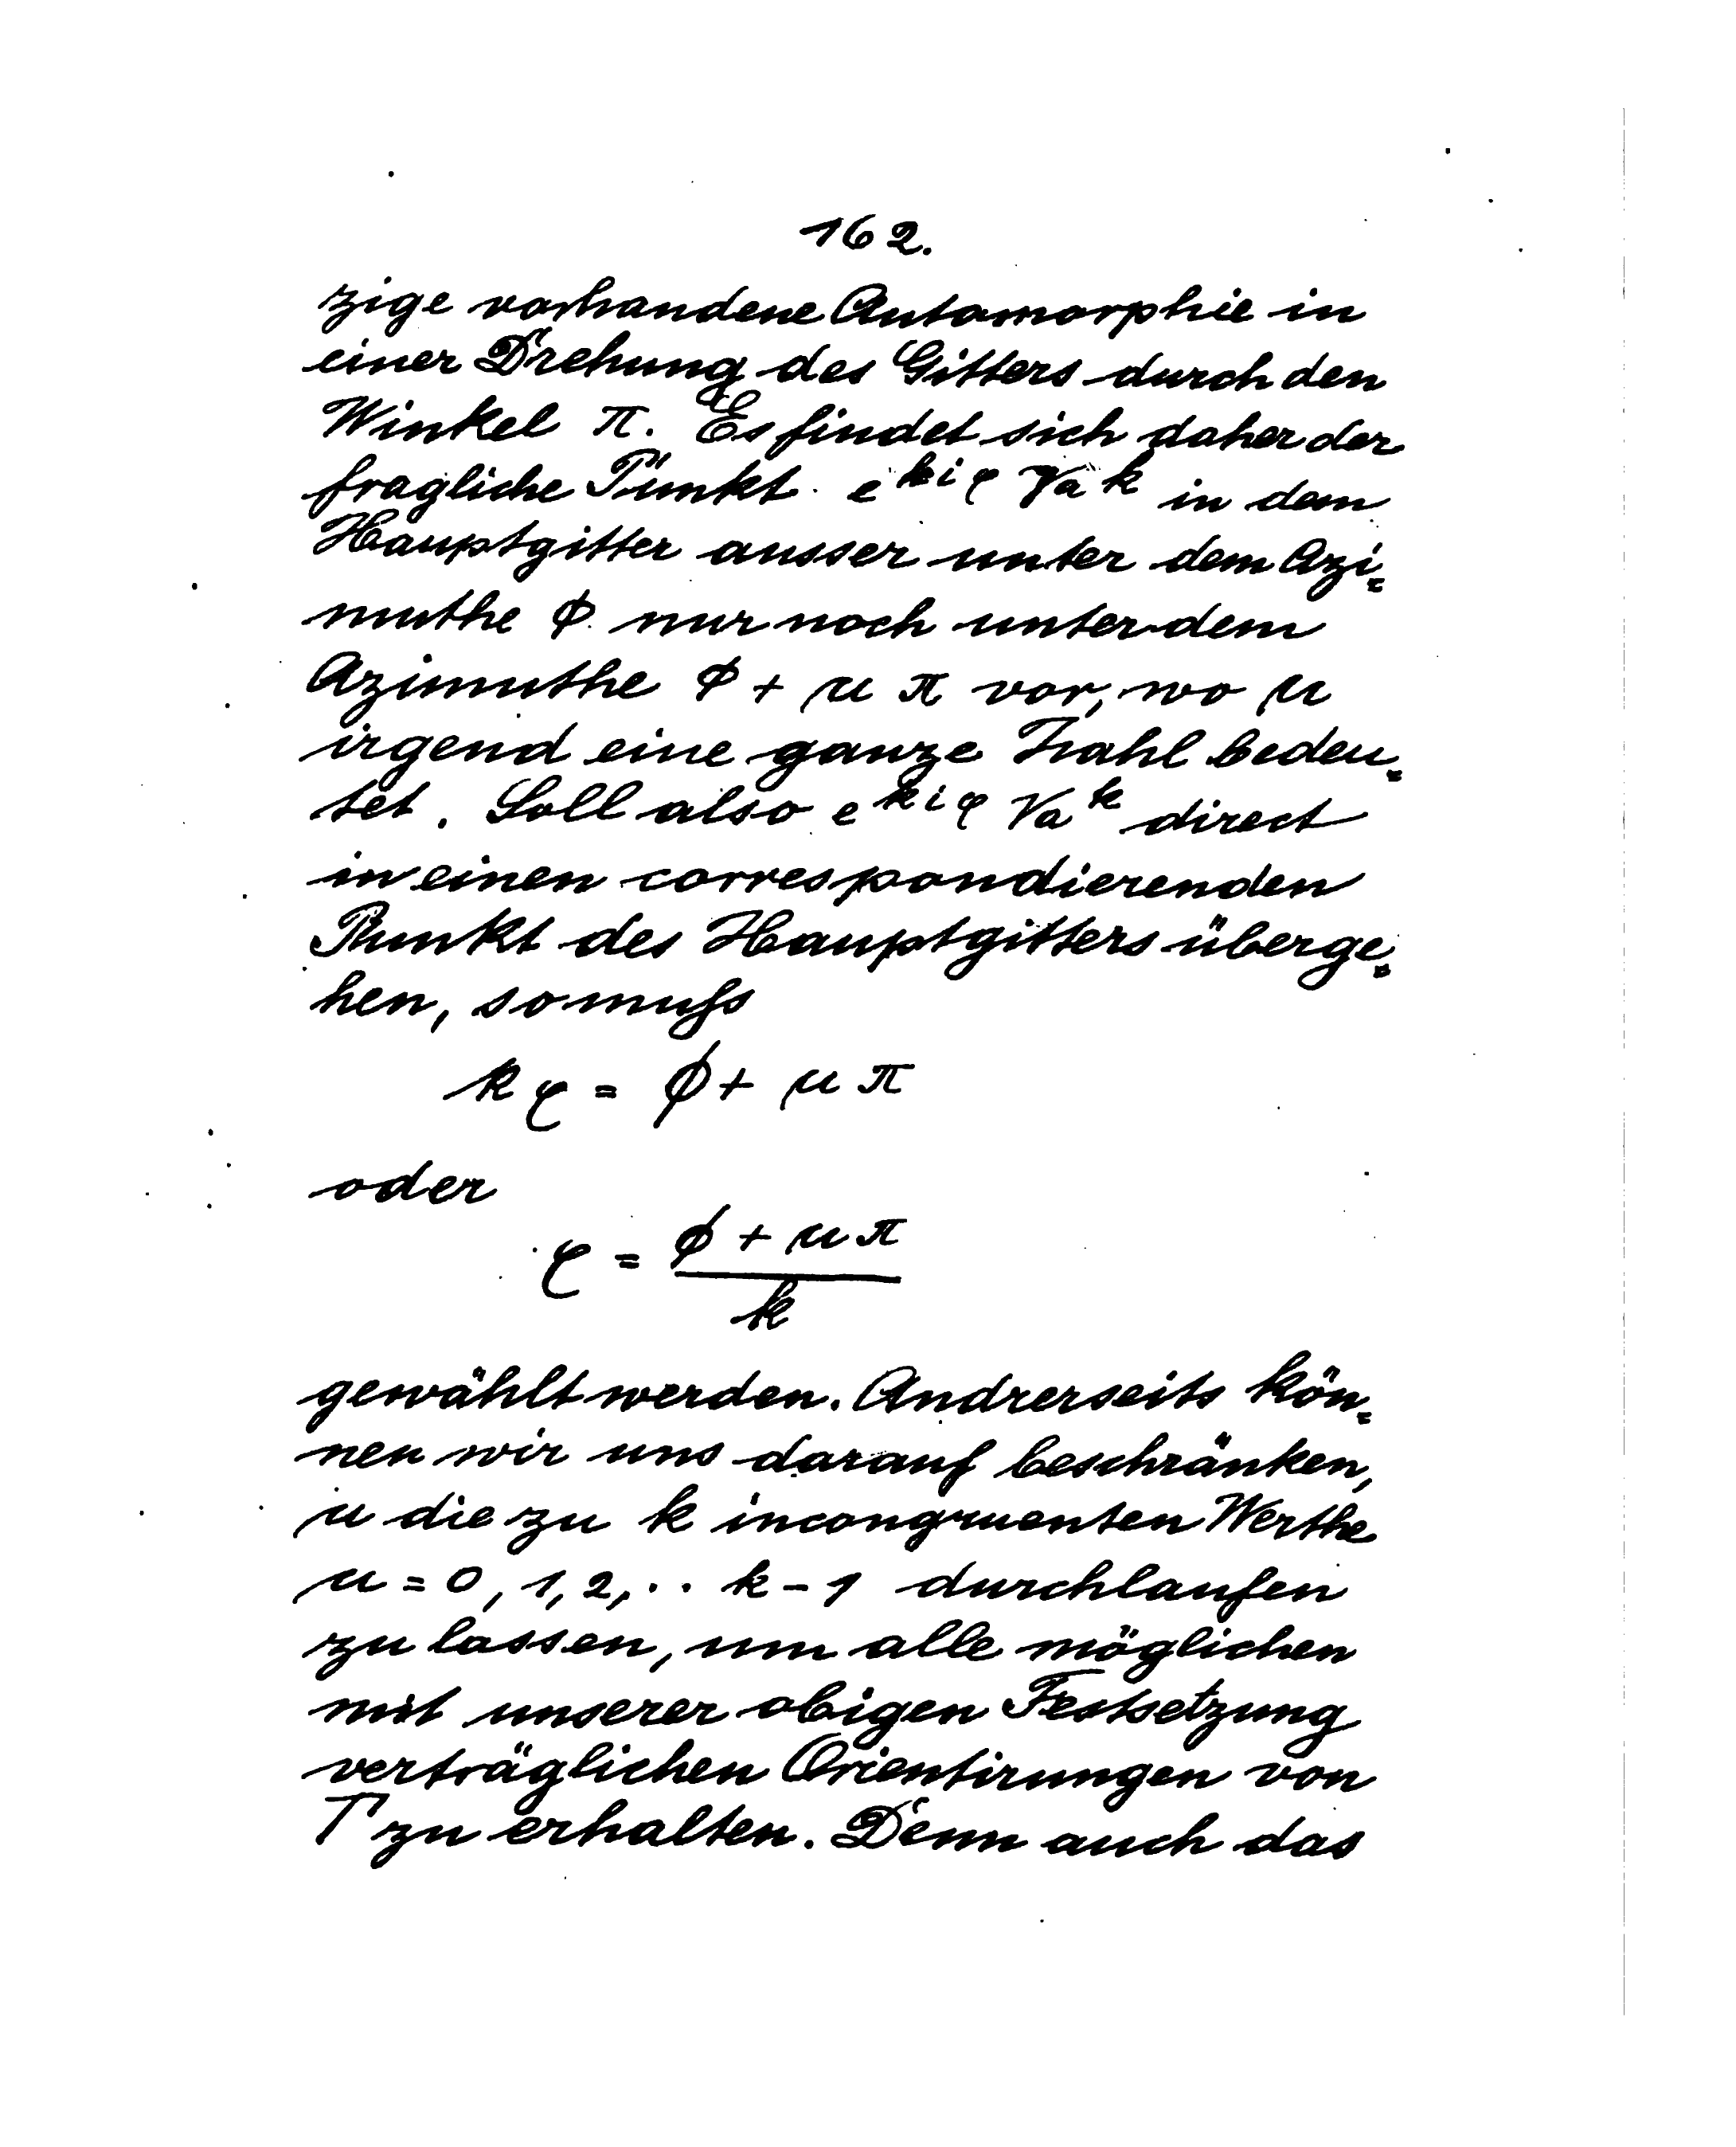 162.
zige vorhandene Automorphie in
einer Drehung des Gitters durch den
Winkel π. Es findet sich daher der
fragliche Punkt e^{kiφ} √a^k in dem
Hauptgitter ausser unter dem Azi=
muthe ϕ nur noch unter dem
Azimuthe ϕ + μ π vor, wo μ
irgend eine ganze Zahl bedeu=
tet. Soll also e^{kiφ} √a^k direct
in einen correspondierenden
Punkt des Hauptgitters überge=
hen, so muſs
kφ = ϕ + μ π
oder
φ = (ϕ + μ π)/k
gewählt werden. Andrerseits kön=
nen wir uns darauf beschränken,
μ die zu k incongruenten Werthe
μ = 0, 1, 2, .. k - 1 durchlaufen
zu lassen, um alle möglichen
mit unserer obigen Festsetzung
verträglichen Orientirungen von
Γ zu erhalten. Denn auch das